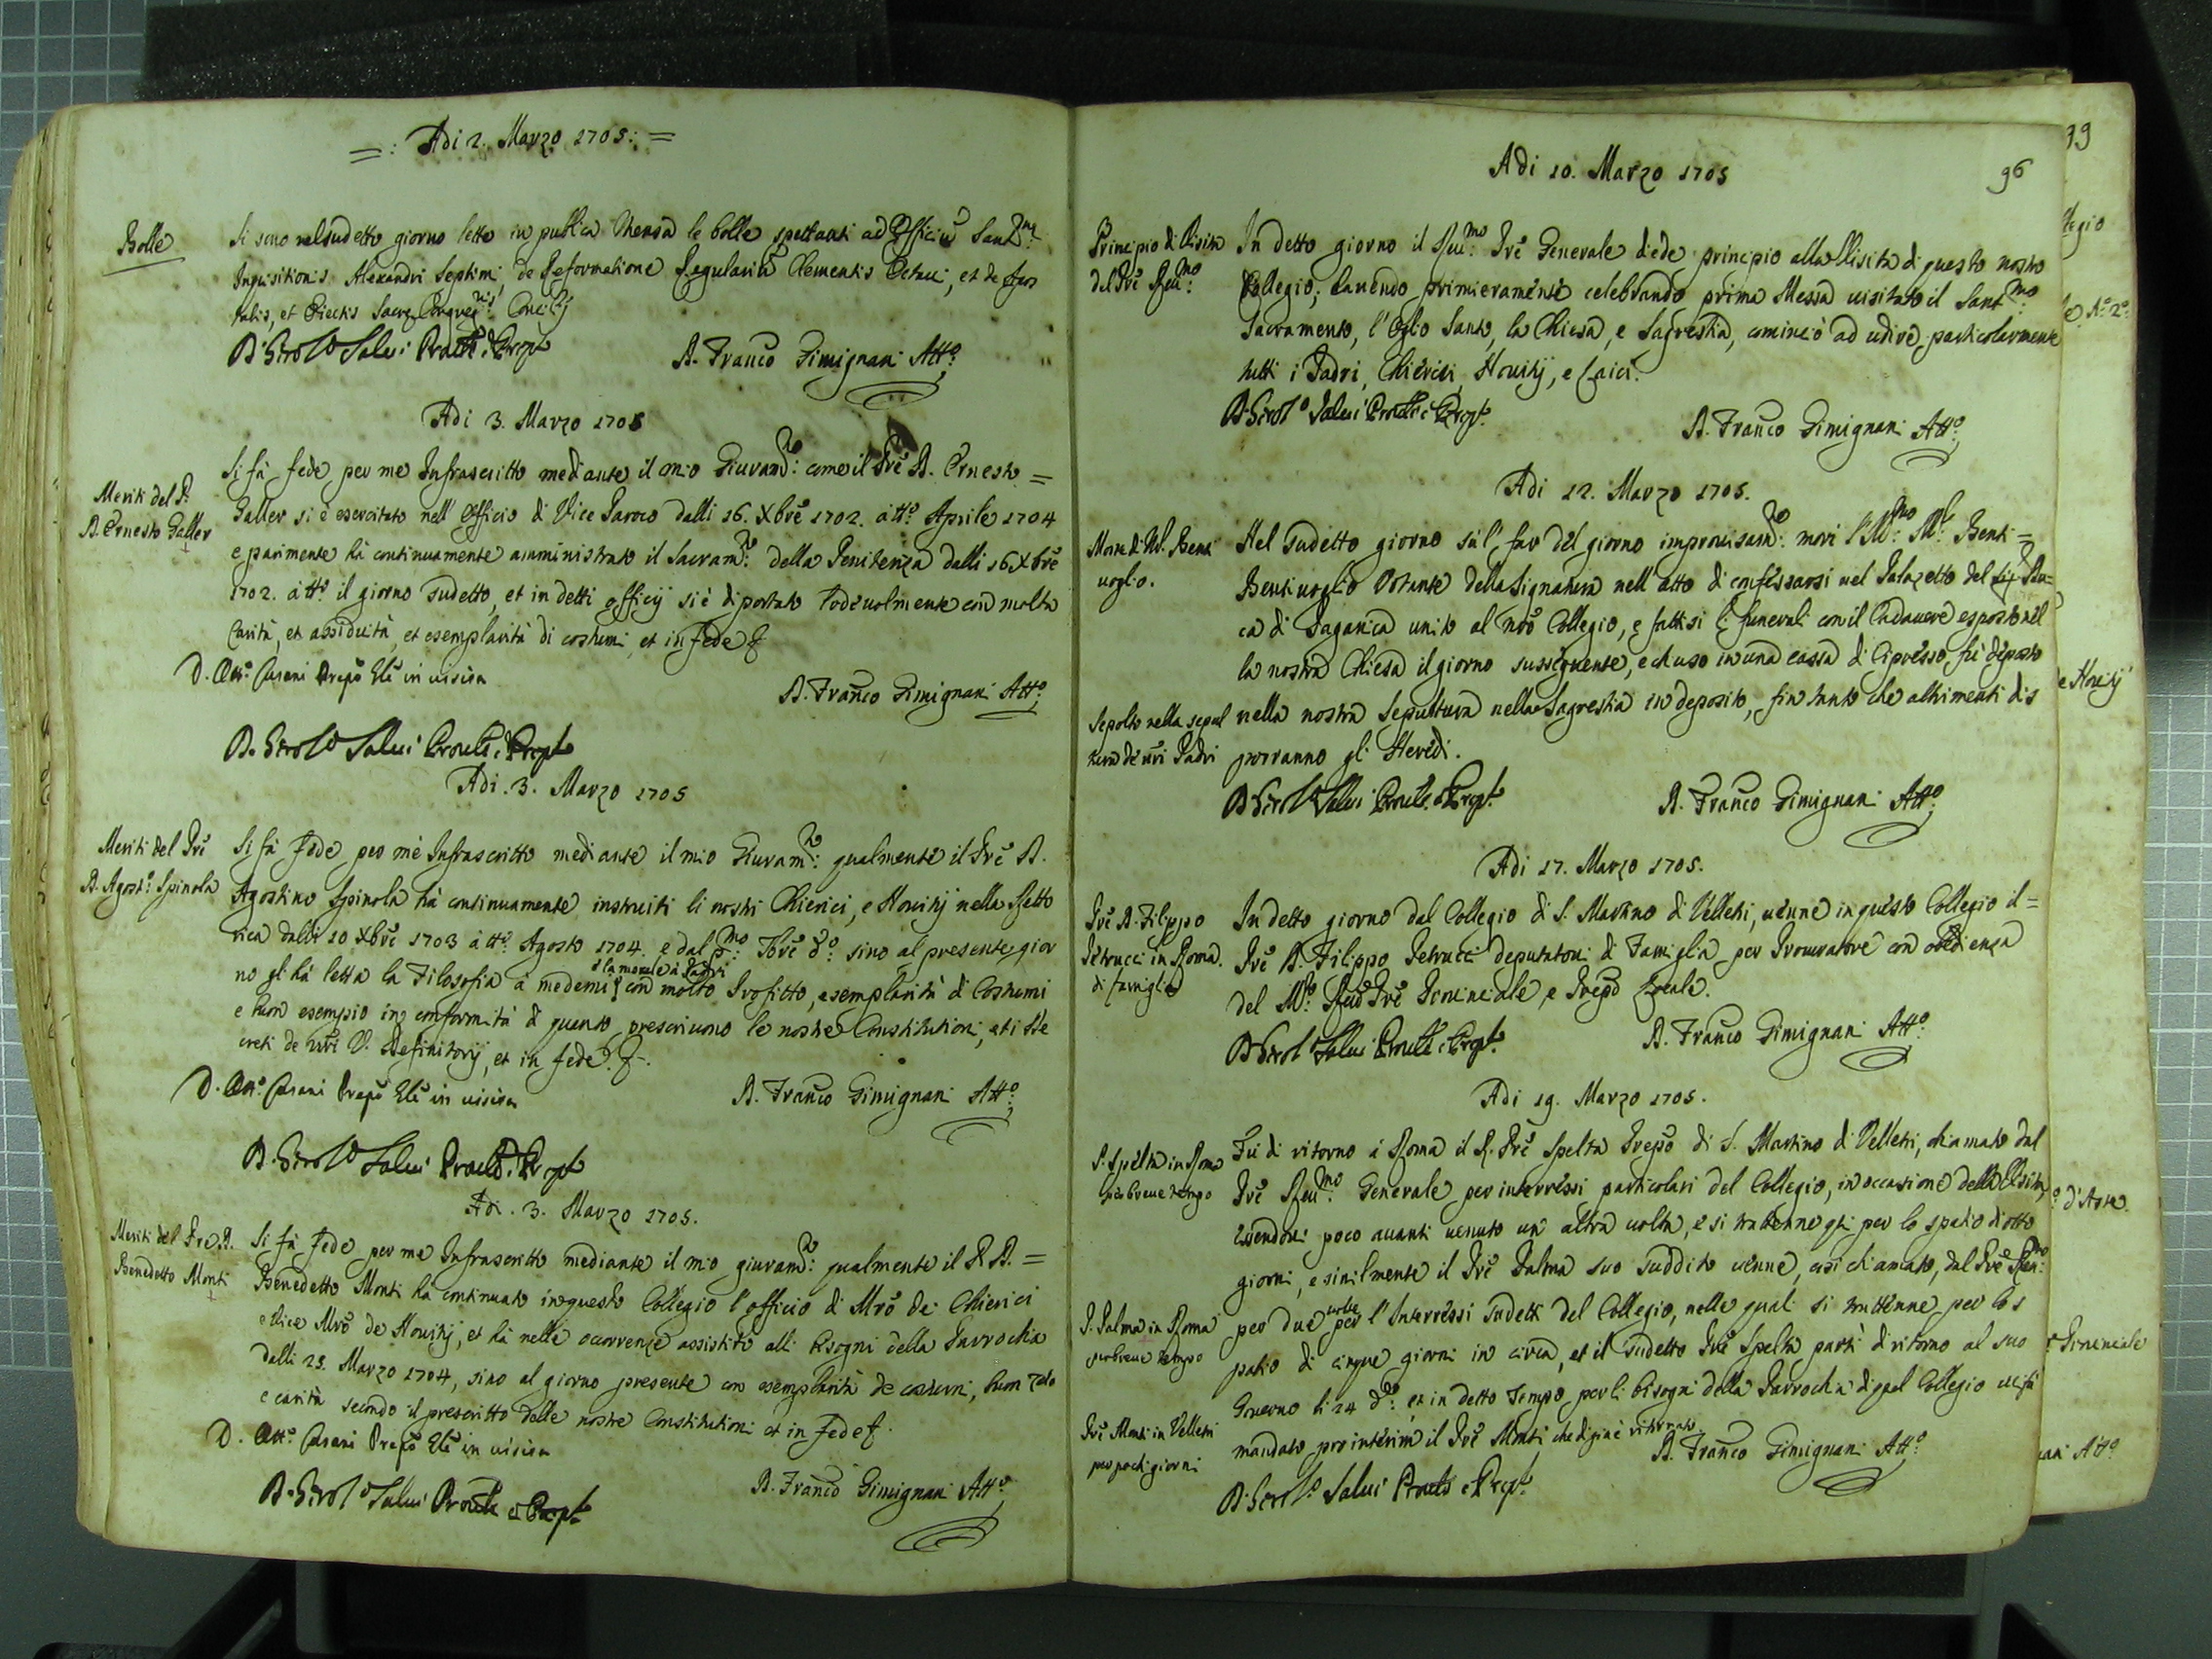 =: Adi 2. Marzo 1705: =
Bolle
Si sono nel sudetto giorno lette in publica Mensa le bolle spettanti ad Officiũ Sanctmę
Inquisitionis Alexandri Septimi, de Reformatione Regulariũ Clementis Octavi, et de
Sacrę Congregnis Concilij
D. Girolo Salvi Proulẽ e Prepto
D. Franco Gimignani Atto:
Adi 3. Marzo 1705
Meriti del P.
D. Ernesto Galler
Si fà fede per me Infrascritto mediante il mio Giuramto: come il Prẽ D. Ernesto =
Galler si è esercitato nell'Officio di Vice Paroco dalli 16. Xbrẽ 1702. à tto: Aprile 1704
e parimente hà continuamente amministrato il Sacramto: della Penitenza dalli 16 Xbrẽ
1702. à tto: il giorno sudetto, et in detti officij si è diportato lodevolmente con molta
Carità, et assiduità, et esemplarità di costumi, et in fede
D. Anto: Prepõ in visita
D. Franco Gimignani Atto:
D. Girolo Salvi Proulẽ e Prepto
Adi. 3. Marzo 1705
Meriti del Prẽ
D. Agosto: Spinola
Si fà fede per me Infrascritto mediante il mio Giuramto: qualmente il Prẽ D.
Agostino Spinola hà continuamente instruiti li nostri Chierici, e Novitij nella Retto
rica dalli 10 Xbrẽ 1703 à tto: Agosto 1704. e dal pmo: 7brẽ do: sino al presente gior
e la morale à Padri
no gli hà letta la Filosofia à medemi con molto Profitto, esemplarità di Costumi
e buon esempio in conformità di quanto prescrivono le nostre Constitutioni, et i De
creti de nrĩ V. Definitorij, et in fede.
D. Anto: Prepõ in visita
D. Franco Gimignani Atto:
D. Girolo Salvi Proulẽ e Prepto
Adi. 3. Marzo 1705.
Meriti del Pre. D.
Benedetto Monti
Si fà fede per me Infrascritto mediante il mio giuramto: qualmente il P. D. =
Benedetto Monti hà continuato in questo Collegio l'officio di Mrõ de Chierici
e Vice Mrõ de Novitij, et hà nelle occorrenze assistito alli bisogni della Parrochia
dalli 25. Marzo 1704, sino al giorno presente con esemplarità de costumi, buon zelo
e carità secondo il prescritto delle nostre Constitutioni et in fede
D. Anto: Prepõ in visita
D. Franco Gimignani Atto:
D. Girolo Salvi Proulẽ e Prepto
96
Adi 10. Marzo 1705
Principio di Visita
del Prẽ Revmo:
In detto giorno il Revmo: Prẽ Generale diede principio alla Visita di questo nostro
Collegio, havendo primieramente celebrando prima Messa visitato il Santmo:
Sacramento, l'Oglio Santo, la Chiesa, e Sagrestia, cominciò ad udire particolarmente
tutti i Padri, Chierici, Novitij, e Laici.
D. Girolo Salvi Proulẽ e Prepto
D. Franco Gimignani Atto:
Adi 12. Marzo 1705.
Morte di M. Benti
voglio.
Nel sudetto giorno sù l' far del giorno improvisamte: morì l'Illmo: Mr: Benti =
Bentivoglio Votante della Signatura nell'atto di confessarsi nel Palazetto del Du=
ca di Paganica unito al nrõ Collegio, e fattisi li funerali con il Cadavere esposto nel
la nostra Chiesa il giorno susseguente, e chiuso in una cassa di Cipresso, fù deposto
Sepolto nella sepul
tura de nrĩ Padri
nella nostra Sepultura nella Sagrestia in deposito, fin tanto che altrimenti dis
porranno gli Heredi.
D. Girolo Salvi Proulẽ e Prepto
D. Franco Gimignani Atto:
Adi 17. Marzo 1705.
Prẽ D. Filippo
Petrucci in Roma
di famiglia
In detto giorno dal Collegio di S. Martino di Velletri, venne in questo Collegio il =
Prẽ D. Filippo Petrucci deputatovi di Famiglia per Procuratore con obedienza
del Mto: Revdo Prẽ Provinciale, e Prepõ Locale.
D. Girolo Salvi Proulẽ e Prepto
D. Franco Gimignani Atto:
Adi 19. Marzo 1705.
P. Spelta in Roma
per breve tempo
Fù di ritorno à Roma il R. Prẽ Spelta Prepõ di S. Martino di Velletri, chiamato dal
Prẽ Revmo: Generale per interessi particolari del Collegio, in occasione della Visita
essendovi poco avanti venuto un'altra volta, e si trattenne qui per lo spatio di otto
giorni, e similmente il Prẽ Palma suo suddito venne, così chiamato, dal Prẽ Revmo:
P. Palma in Roma
per breve tempo
volte
per due per l'Interessi sudetti del Collegio, nelle quali si trattenne per lo s
patio di cinque giorni in circa, et il sudetto Prẽ Spelta partì di ritorno al suo
Governo li 24 do: et in detto Tempo per li bisogni della Parrochia di quel Collegio vi fù
Prẽ Monti in Velletri
per pochi giorni
mandato per interim il Prẽ Monti che di già è ritornato
D. Girolo Salvi Proulẽ e Prepto
D. Franco Gimignani Atto:
99